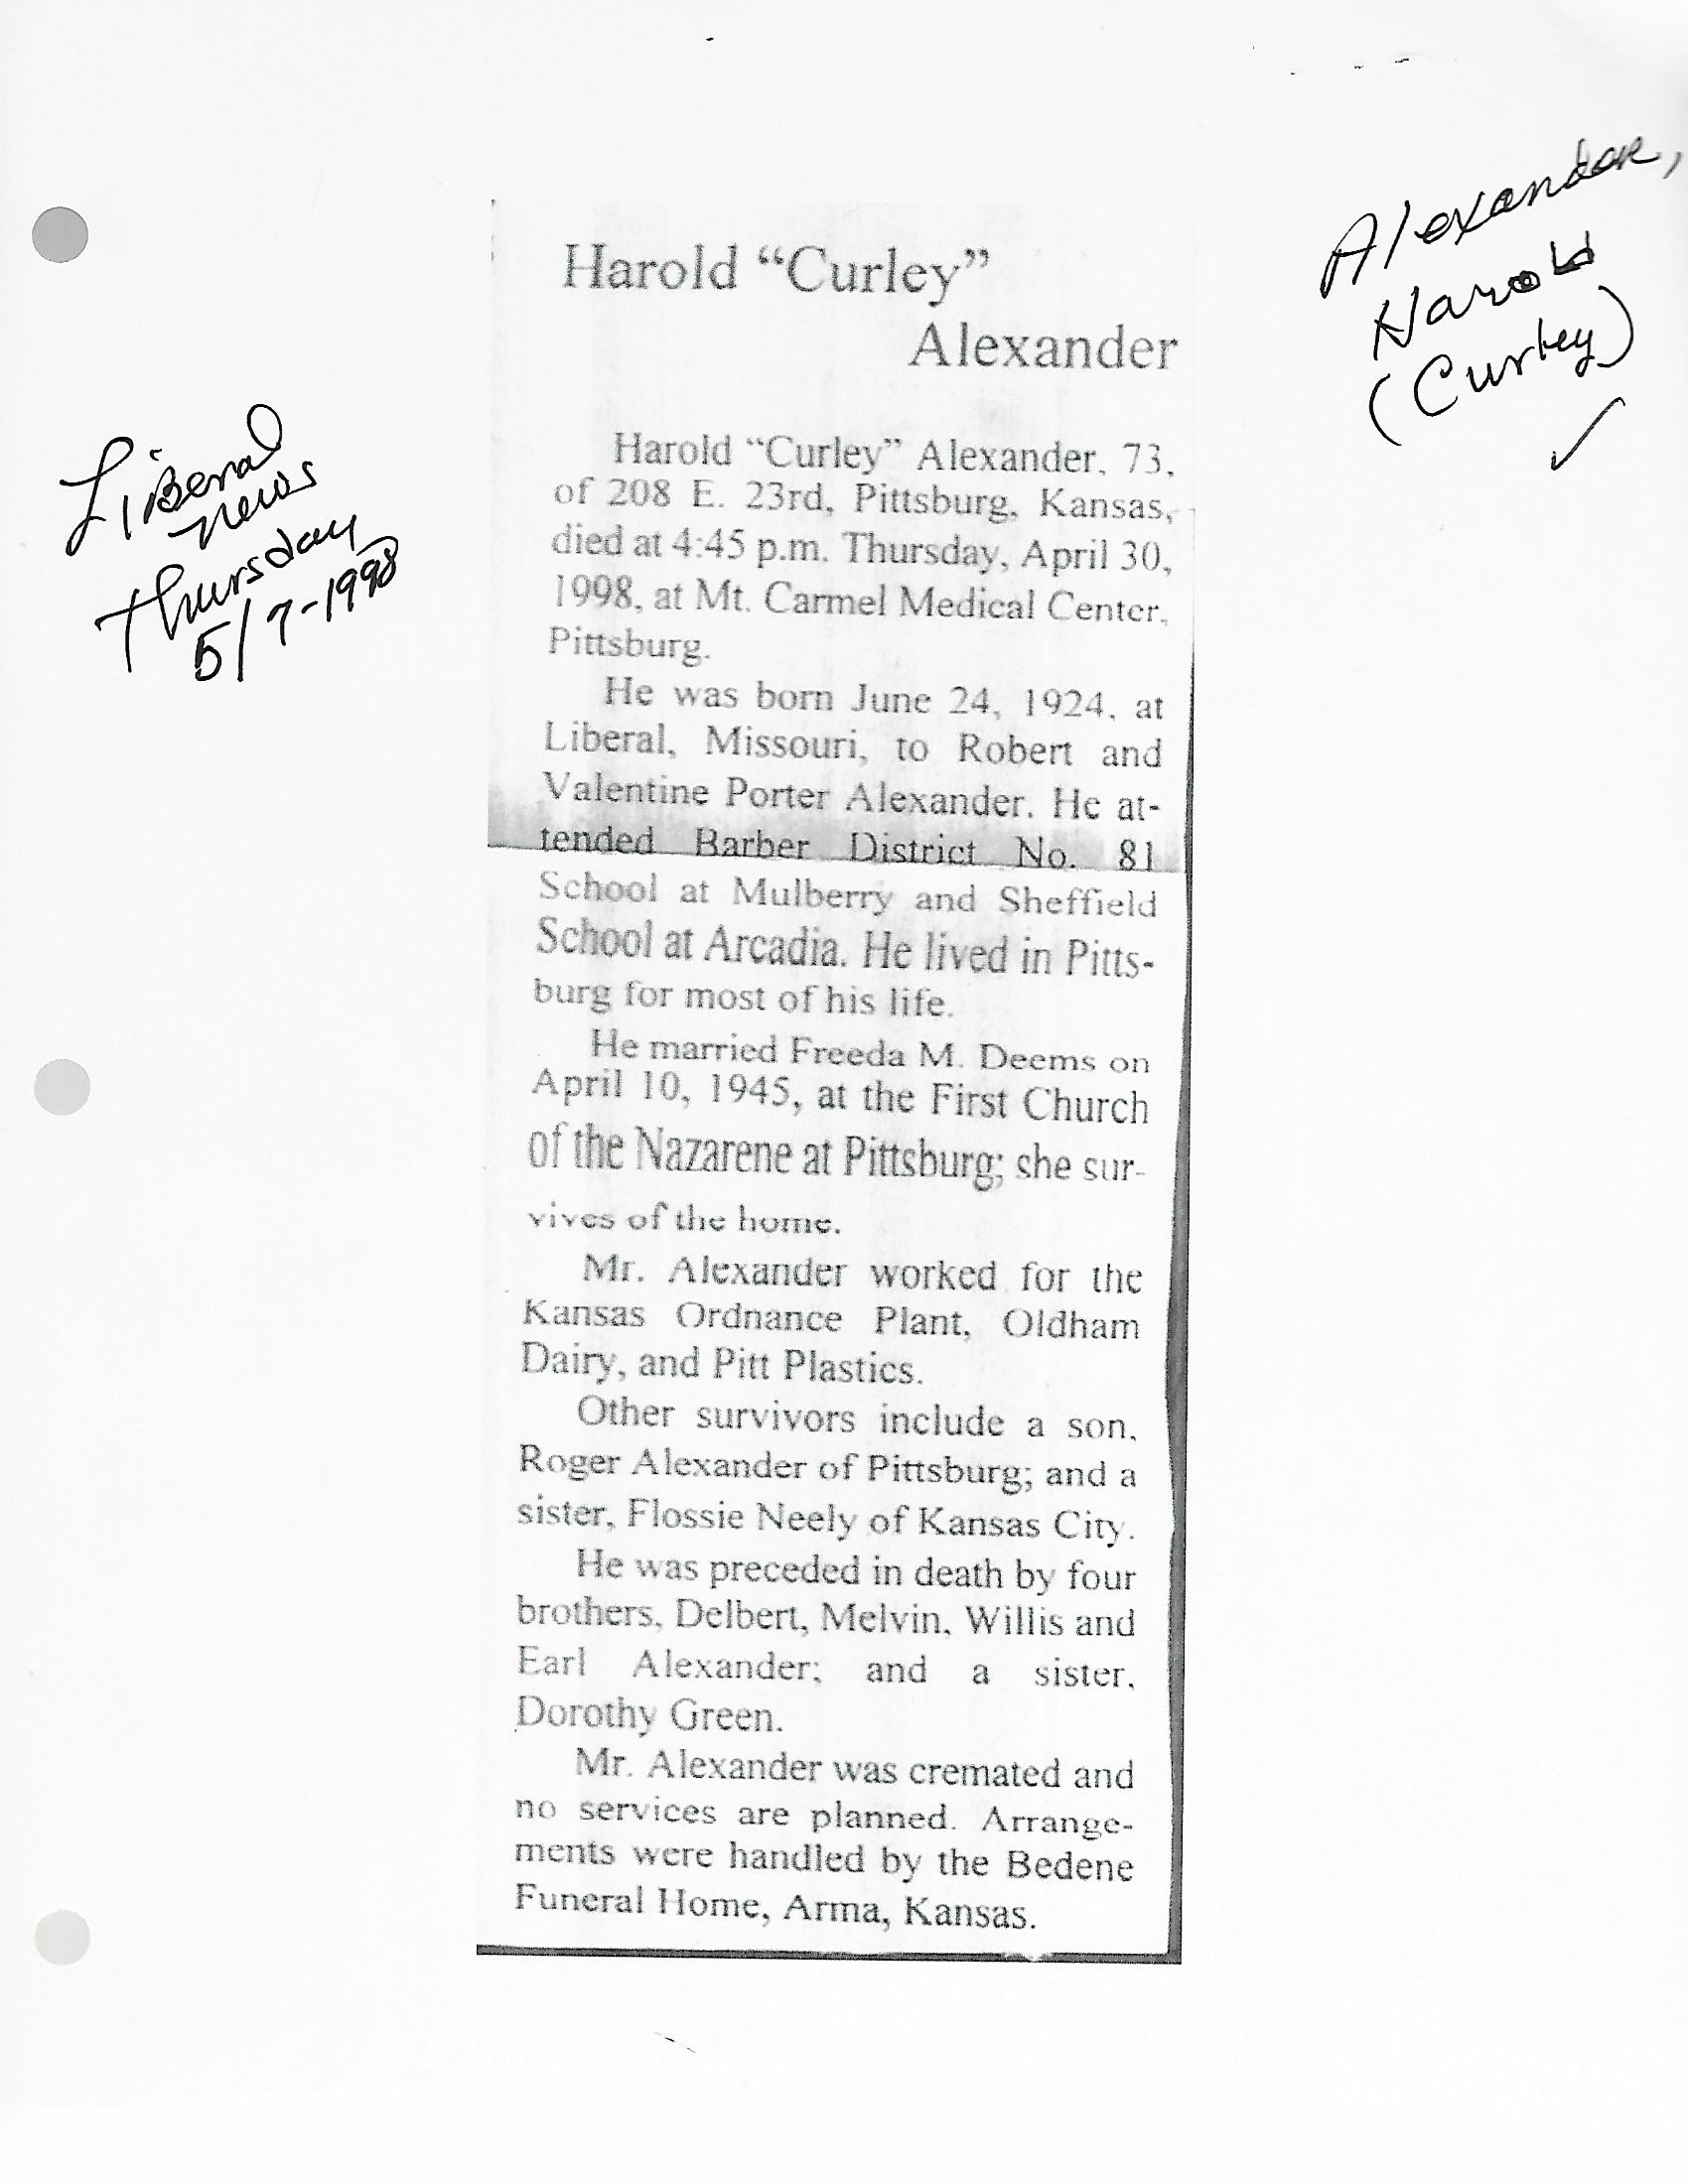 Alexander,
Harold
(Curley)
✓
Liberal
News
Thursday
5/7-1998
Harold “Curley”
Alexander
Harold “Curley” Alexander, 73,
of 208 E. 23rd, Pittsburg, Kansas,
died at 4:45 p.m. Thursday, April 30,
1998, at Mt. Carmel Medical Center,
Pittsburg.
He was born June 24, 1924, at
Liberal, Missouri, to Robert and
Valentine Porter Alexander. He at-
tended Barber District No. 81
School at Mulberry and Sheffield
School at Arcadia. He lived in Pitts-
burg for most of his life.
He married Freeda M. Deems on
April 10, 1945, at the First Church
of the Nazarene at Pittsburg; she sur-
vives of the home.
Mr. Alexander worked for the
Kansas Ordnance Plant, Oldham
Dairy, and Pitt Plastics.
Other survivors include a son,
Roger Alexander of Pittsburg; and a
sister, Flossie Neely of Kansas City.
He was preceded in death by four
brothers, Delbert, Melvin, Willis and
Earl Alexander; and a sister,
Dorothy Green.
Mr. Alexander was cremated and
no services are planned. Arrange-
ments were handled by the Bedene
Funeral Home, Arma, Kansas.